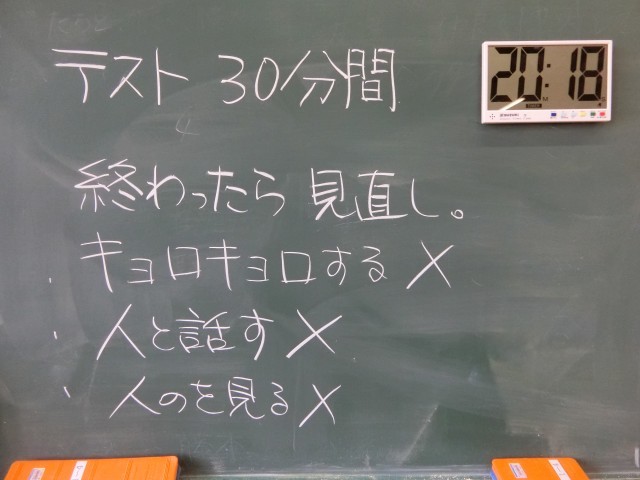 テスト 30分間
20:18
終わったら 見直し。
キョロキョロする ×
人と話す ×
人のを見る ×